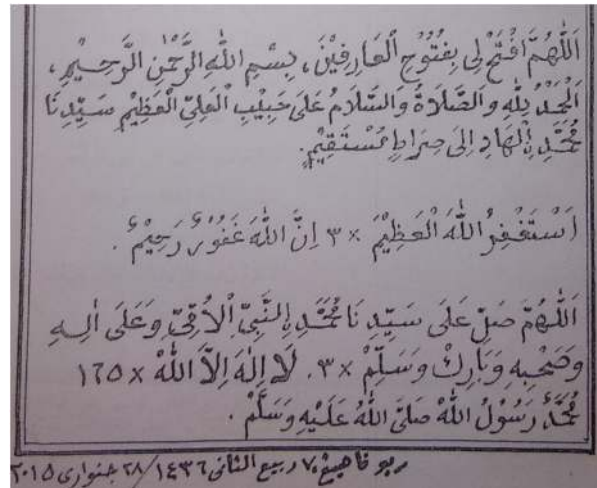 اَللّٰهُمَّ افْتَحْ لِى بِفُتُوْحِ الْعَارِفِيْنَ، بِسْمِ اللهِ الرَّحْمٰنِ الرَّحِيْمِ،
اَلْحَمْدُ لِلّٰهِ وَالصَّلَاةُ وَالسَّلَامُ عَلَى حَبِيْبِ الْعَلِىِّ الْعَظِيْمِ سَيِّدِنَا
مُحَمَّدِ ࣙالْهَادِ اِلَى صِرَاطٍ مُسْتَقِيْمٍ.
اَسْتَغْفِرُ اللهَ الْعَظِيْمَ ×٣ اِنَّ اللهَ غَفُوْرٌ رَحِيْمٌ.
اَللّٰهُمَّ صَلِّ عَلَى سَيِّدِنَا مُحَمَّدِ ࣙالنَّبِىِّ الْاُمِّىِّ وَعَلَى اٰلِهِ
وَصَحْبِهِ وَبَارِكْ وَسَلِّمْ ×٣. لَا اِلٰهَ اِلَّا اللهْ ×١٦٥
مُحَمَّدٌ رَسُوْلُ اللهْ صَلَّى اللهُ عَلَيْهِ وَسَلَّمْ.
ربو ٧ ربيع الثانى ١٤٣٦/٢٨ جنوارى ٢٠١٥